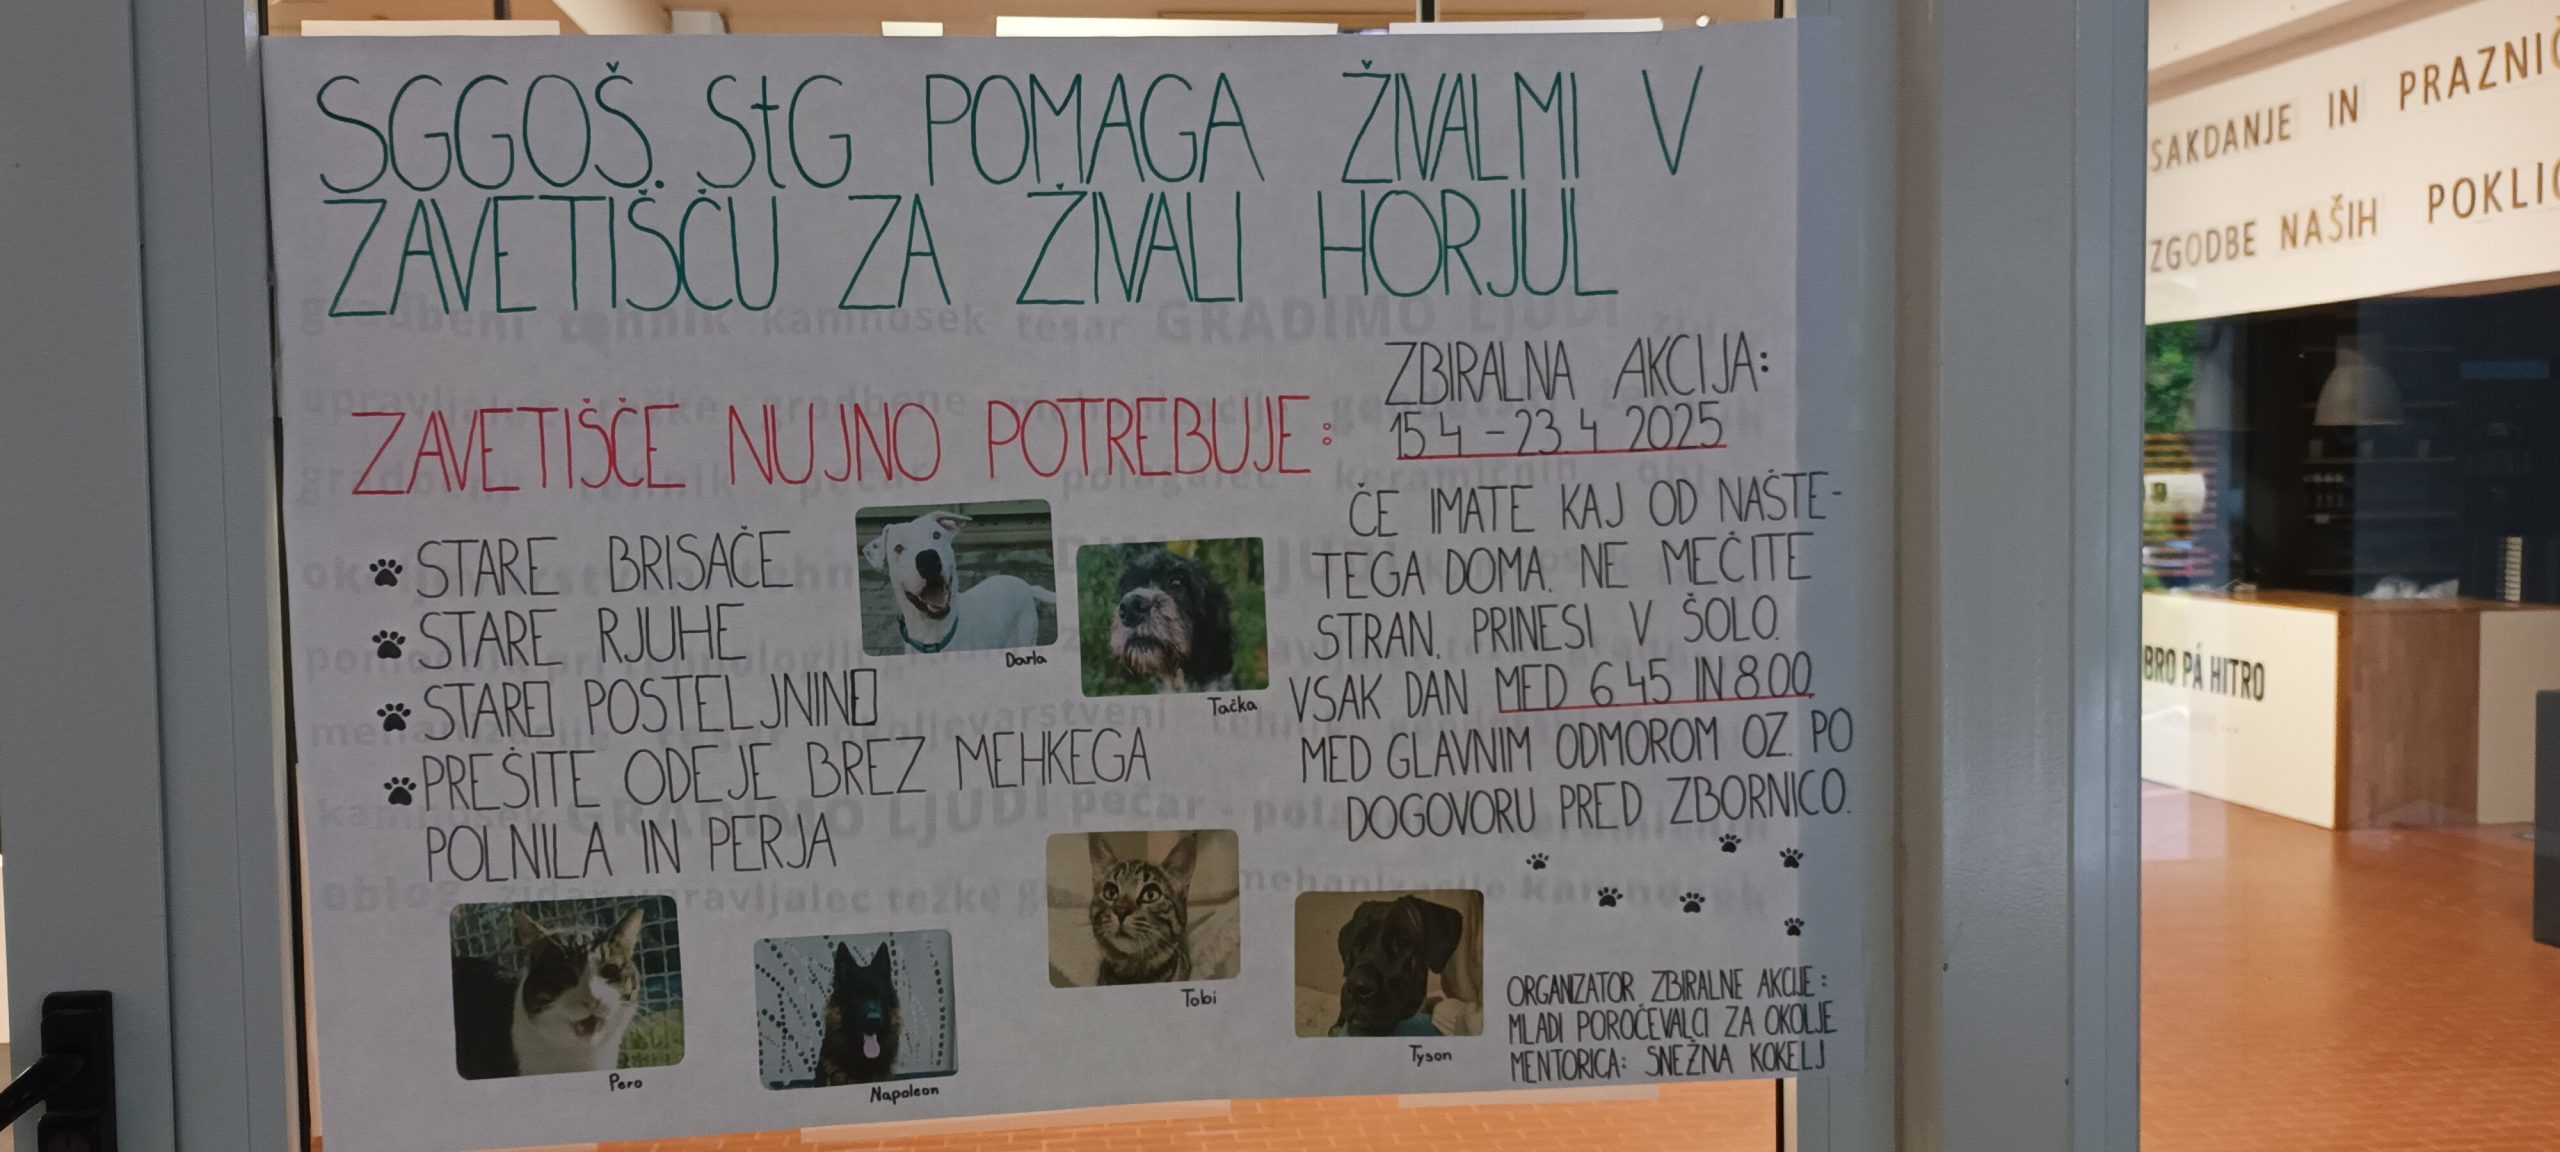 SGGOŠ. StG POMAGA ŽIVALMI V
ZAVETIŠČU ZA ŽIVALI HORJUL
ZAVETIŠČE NUJNO POTREBUJE:
STARE BRISAČE
STARE RJUHE
STARO POSTELJNINO
PREŠITE ODEJE BREZ MEHKEGA
POLNILA IN PERJA
ZBIRALNA AKCIJA:
15.4 - 23.4 2025
ČE IMATE KAJ OD NAŠTE-
TEGA DOMA. NE MEČITE
STRAN. PRINESI V ŠOLO.
VSAK DAN MED 6.45 IN 8.00
MED GLAVNIM ODMOROM OZ. PO
DOGOVORU PRED ZBORNICO.
Darla
Tačka
Pero
Napoleon
Tobi
Tyson
ORGANIZATOR ZBIRALNE AKCIJE:
MLADI POROČEVALCI ZA OKOLJE
MENTORICA: SNEŽNA KOKELJ
gradbeni tehnik kamnosek tesar GRADIMO LJUDI
GRADIMO LJUDI pečar
upravljalec težke
SAKDANJE IN PRAZNIČ
ZGODBE NAŠIH POKLIC
BRO PA HITRO